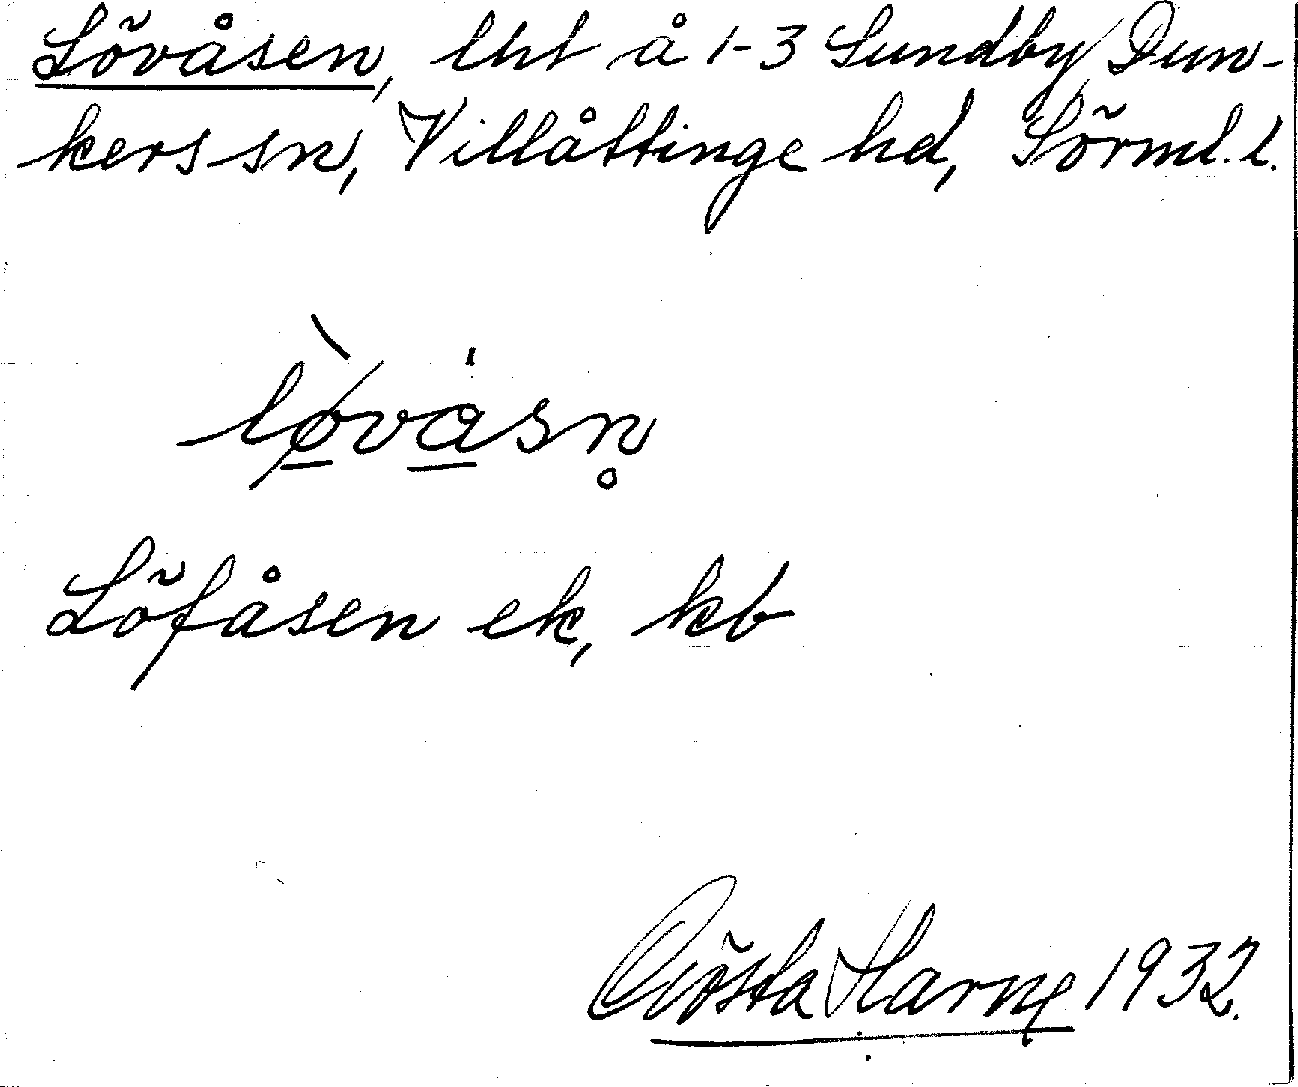 Lövåsen, lht å 1-3 Sundby, Dun-
kers sn, Villåttinge hd, Sörml. l.
lø̀våsn̥
Löfåsen ek, kb
Gösta Harne 1932.